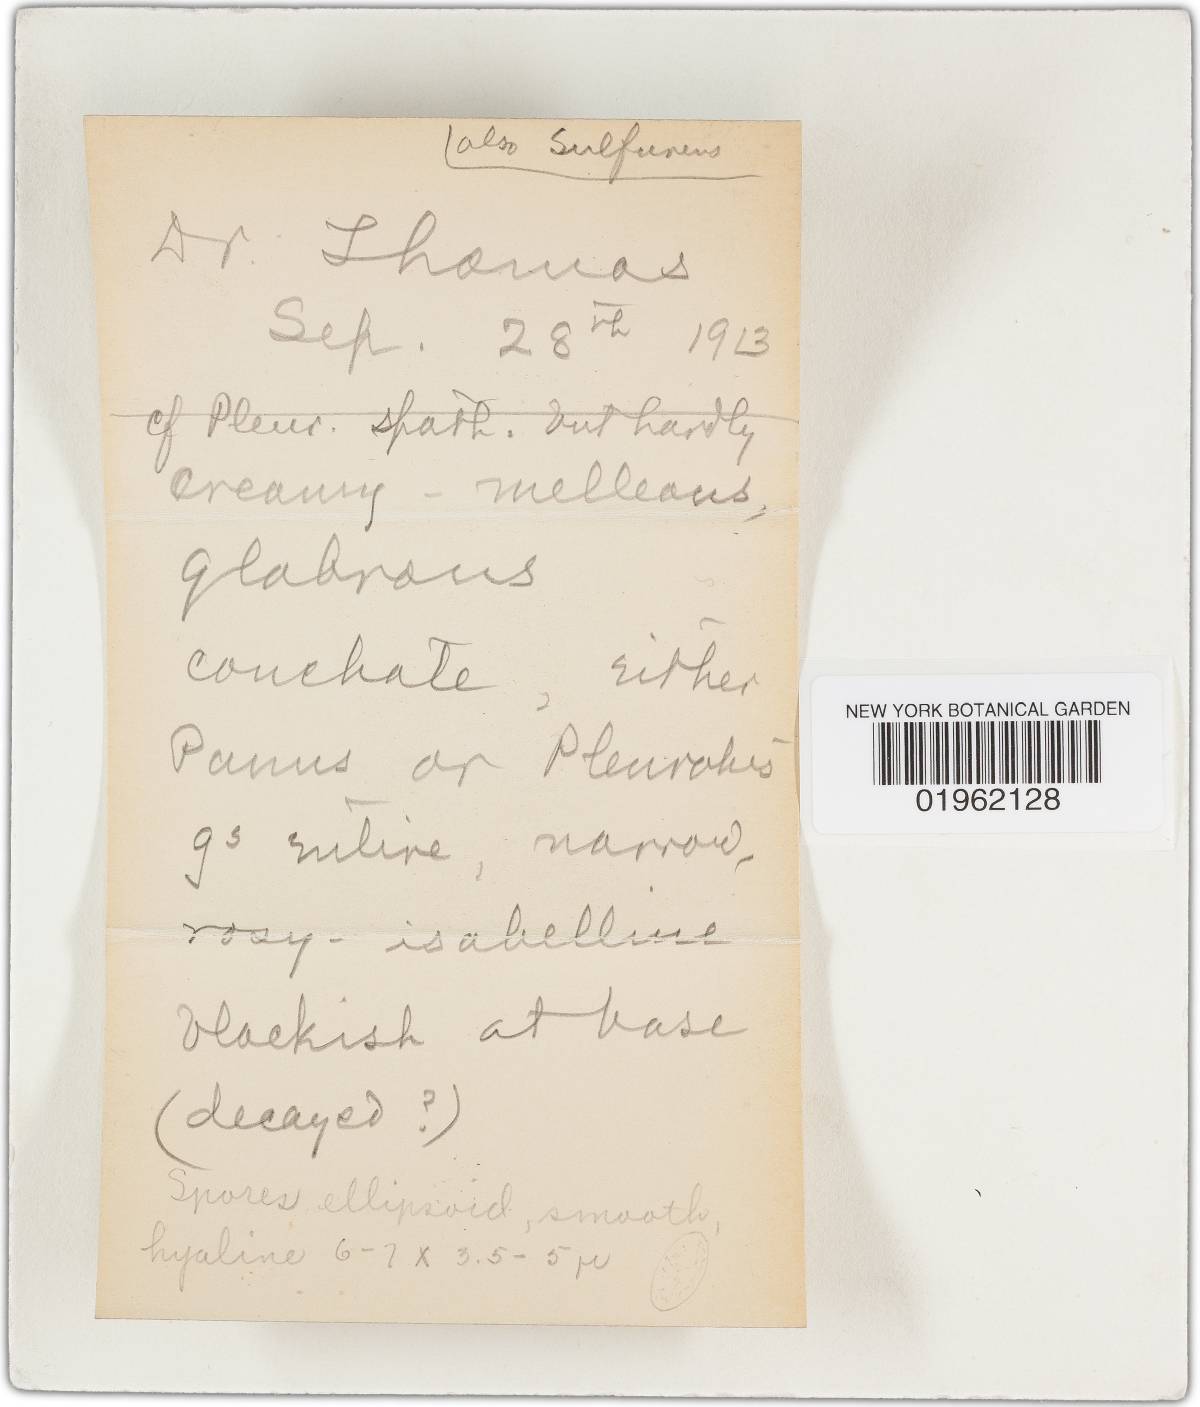 also Sulfureus
Dr. Thomas
Sep. 28th 1913
cf Pleur. spath. but hardly
creamy - melleous,
glabrous
conchate, either
Panus or Pleurotus
gs entire, narrow,
rosy - isabelline
blackish at base
(decayed ?)
Spores ellipsoid, smooth,
hyaline 6-7 x 3.5-5 μ
NEW YORK BOTANICAL GARDEN
01962128